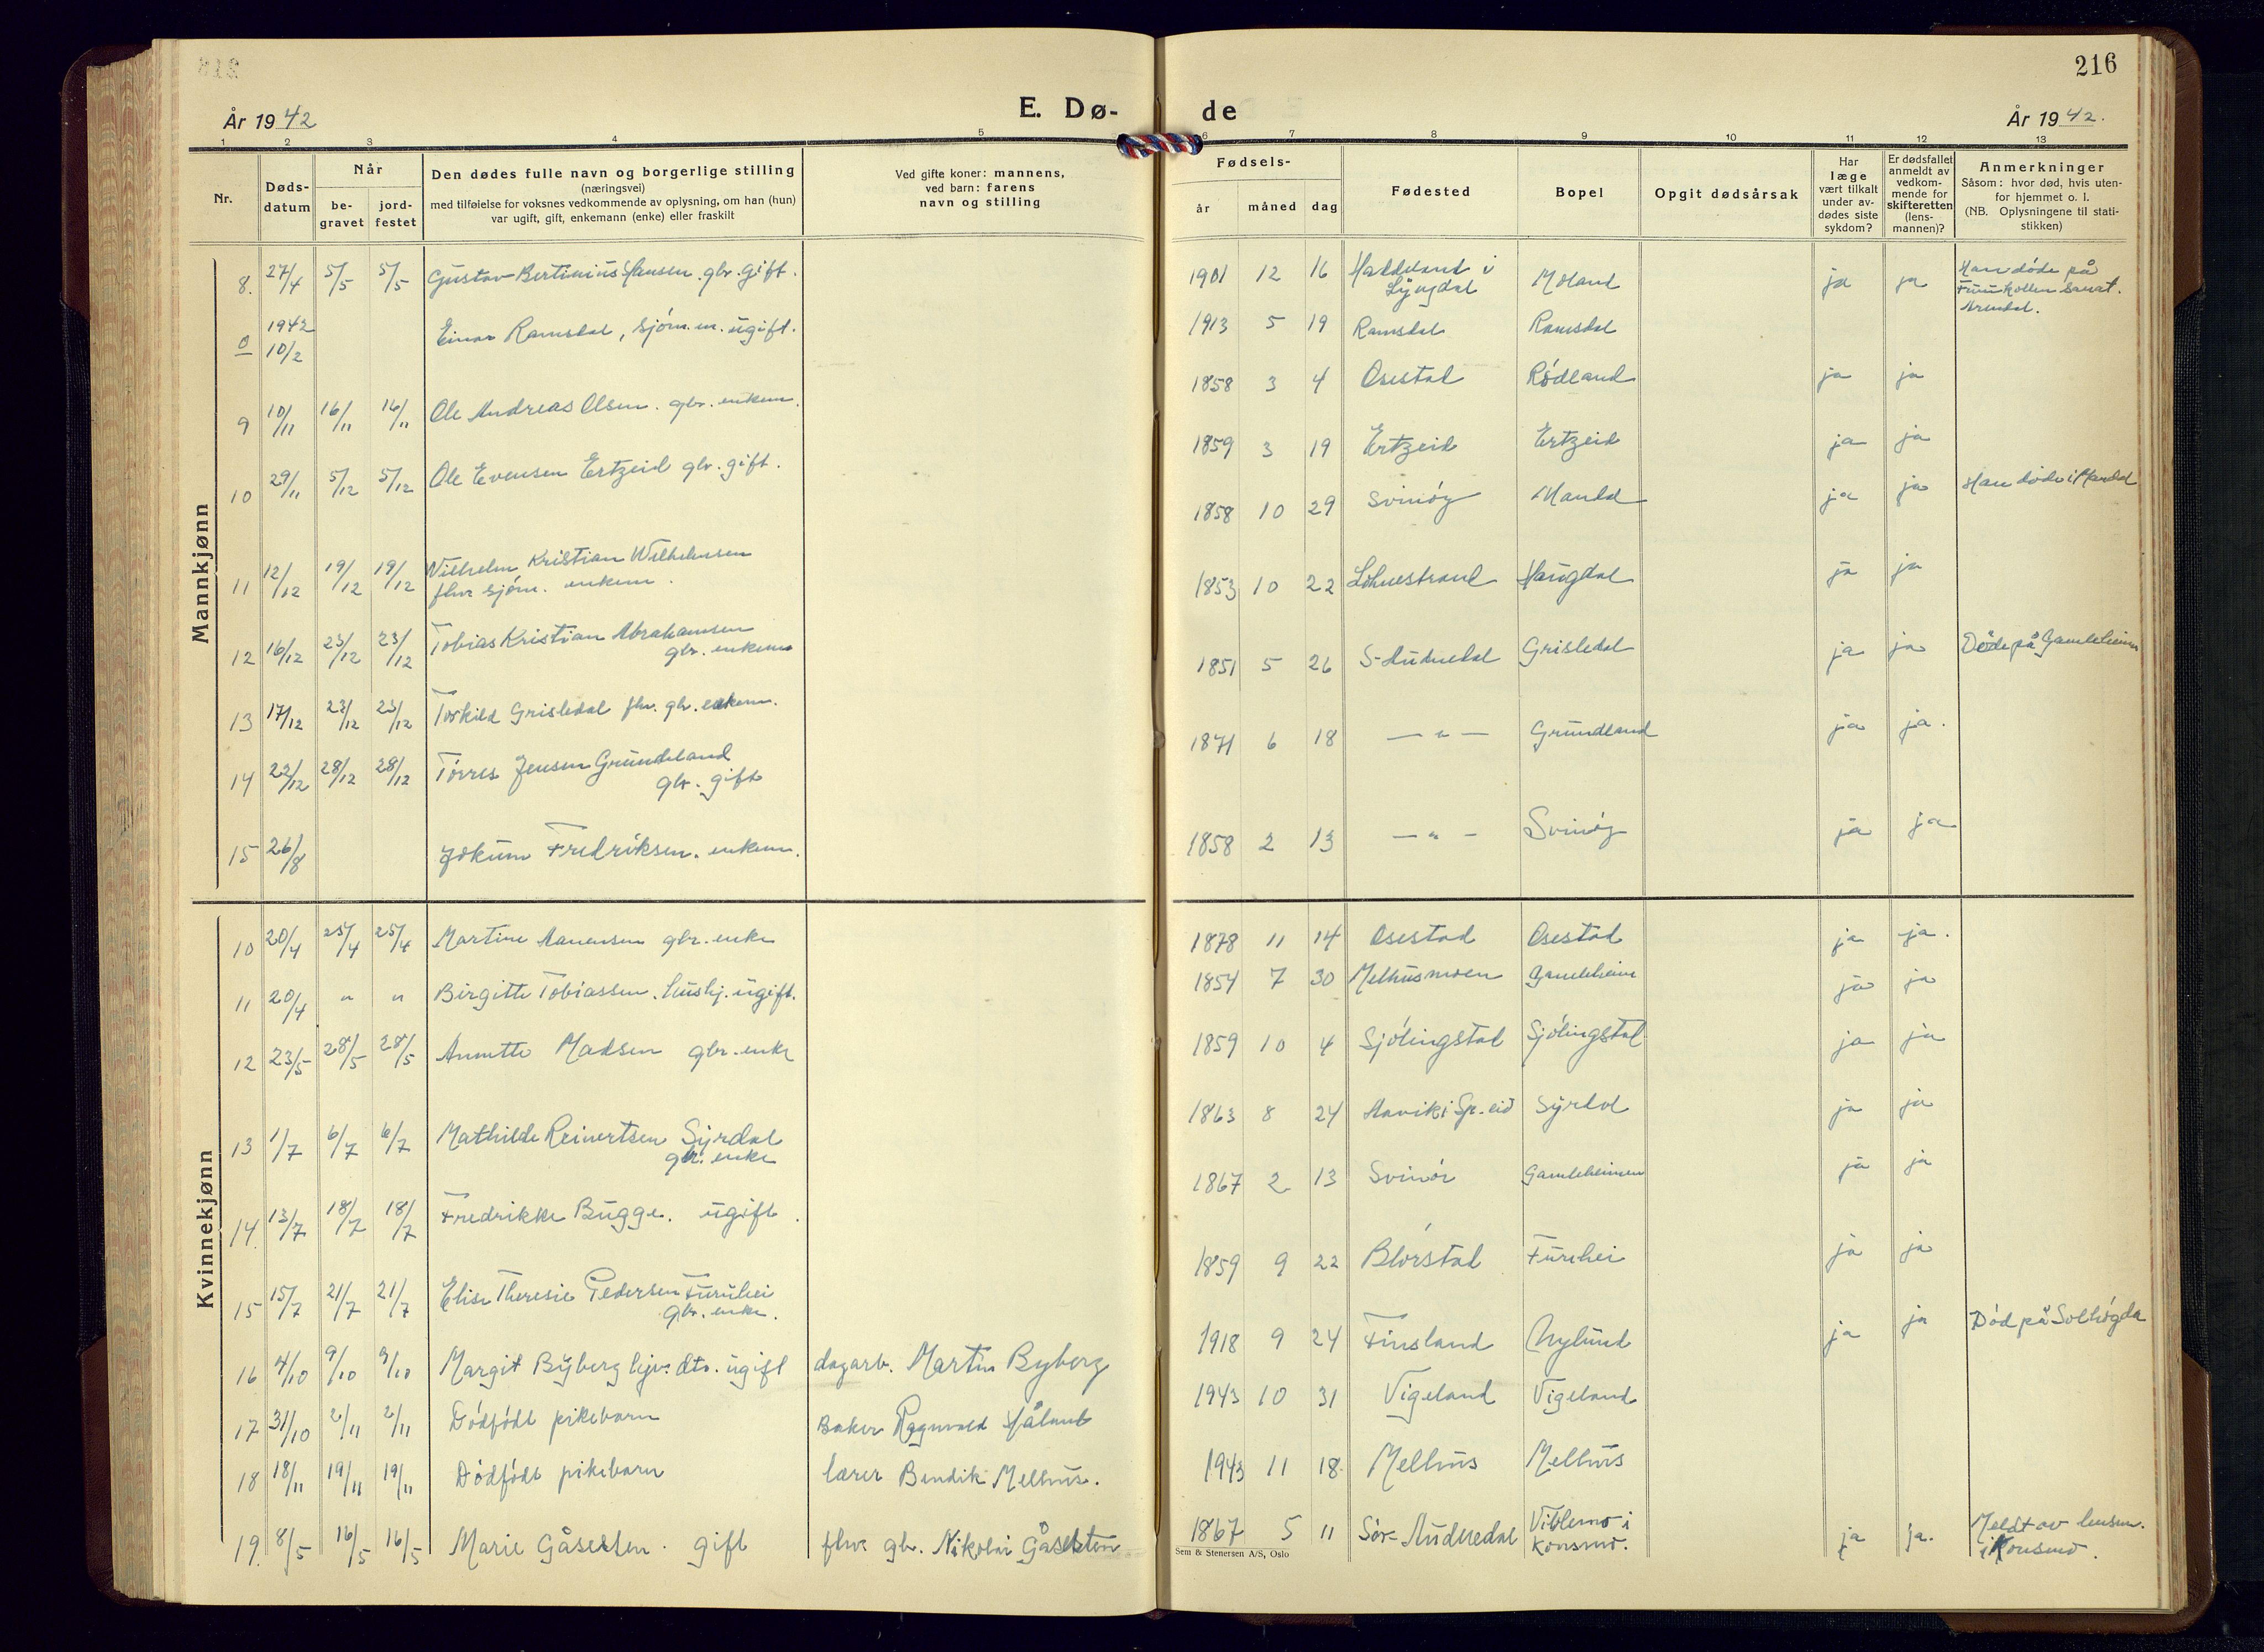 216
År 1942
E. Dø-
de
År 1942.
1 2 3 4 5 6 7 8 9 10 11 12 13
Nr.
Døds-
datum
Når
be-
gravet
jord-
festet
Den dødes fulle navn og borgerlige stilling
(næringsvei)
med tilføielse for voksnes vedkommende av oplysning, om han (hun)
var ugift, gift, enkemann (enke) eller fraskilt
Ved gifte koner: mannens,
ved barn: farens
navn og stilling
Fødsels-
år måned dag
Fødested
Bopel
Opgit dødsårsak
Har
læge
vært tilkalt
under av-
dødes siste
sykdom?
Er dødsfallet
anmeldt av
vedkom-
mende for
skifteretten
(lens-
mannen)?
Anmerkninger
Såsom: hvor død, hvis uten-
for hjemmet o. l.
(NB. Oplysningene til stati-
stikken)
Mannkjønn
8. 27/4 5/5 5/5 Gustav Bertinius Hansen. gbr. gift. 1901 12 16 Haddeland i
Lyngdal Moland ja ja Han døde på
Furukollen sanat.
Arendal.
0 1942
10/2 Einar Ramsdal, sjøm. ugift. 1913 5 19 Ramsdal Ramsdal
9 10/11 16/11 16/11 Ole Andreas Olsen. gbr. enkem. 1858 3 4 Osestad Rødland ja ja
10 29/11 5/12 5/12 Ole Evensen Ertzeid gbr. gift. 1859 3 19 Ertzeid Ertzeid ja ja
11 12/12 19/12 19/12 Vilhelm Kristian Wilhelmsen
fhv sjøm. enkem. 1858 10 29 Svinøy Mandal ja ja Han døde i Mandal
12 16/12 23/12 23/12 Tobias Kristian Abrahamsen
gbr. enkem 1853 10 22 Lohnestrand Haugdal ja ja
13 17/12 23/12 23/12 Torkild Grisledal fhv. gbr. enkem. 1851 5 26 S-Audnedal Grisledal ja ja Døde på Gamleheim
14 22/12 28/12 28/12 Tørres Jensen Grundeland
gbr. gift 1871 6 18 — " — Grundland ja ja.
15 26/8 Jokum Fredriksen. enkem. 1858 2 13 — " — Svinøy ja ja
Kvinnekjønn
10 20/4 25/4 25/4 Martine Aanensen gbr. enke 1878 11 14 Osestad Osestad ja ja.
11 20/4 " " Birgitte Tobiassen. hushj. ugift. 1854 7 30 Melhusmoen Gamleheim ja ja
12 23/5 28/5 28/5 Annette Madsen gbr. enke 1859 10 4 Sjølingstad Sjølingstad ja ja
13 1/7 6/7 6/7 Mathilde Reinertsen Syrdal
gbr. enke 1863 8 24 Aavik i Sp.eid Syrdal ja ja
14. 13/7 18/7 18/7 Fredrikke Bugge. ugift. 1867 2 13 Svinør Gamleheimen ja ja
15 15/7 21/7 21/7 Elise Theresie Pedersen Furuhei
gbr. enke. 1859 9 22 Blørstad Furuhei ja ja
16 4/10 9/10 9/10 Margit Byberg hjv. dtr. ugift dagarb. Martin Byberg 1918 9 24 Finsland Nylund ja ja Død på Solhøgda
17 31/10 2/11 2/11 Dødfødt pikebarn Baker Ragnvald Håland 1943 10 31 Vigeland Vigeland
18 18/11 19/11 19/11 Dødfødt pikebarn lærer Bendik Melhus. 1943 11 18 Melhus Melhus
19. 8/5 16/5 16/5 Marie Gåsesten. gift fhv. gbr. Nikolai Gåsesten 1867 5 11 Sør-Audnedal Viblemo i
Konsmo. ja ja. Meldt av lensm.
i Konsmo.
Sem & Stenersen A/S, Oslo